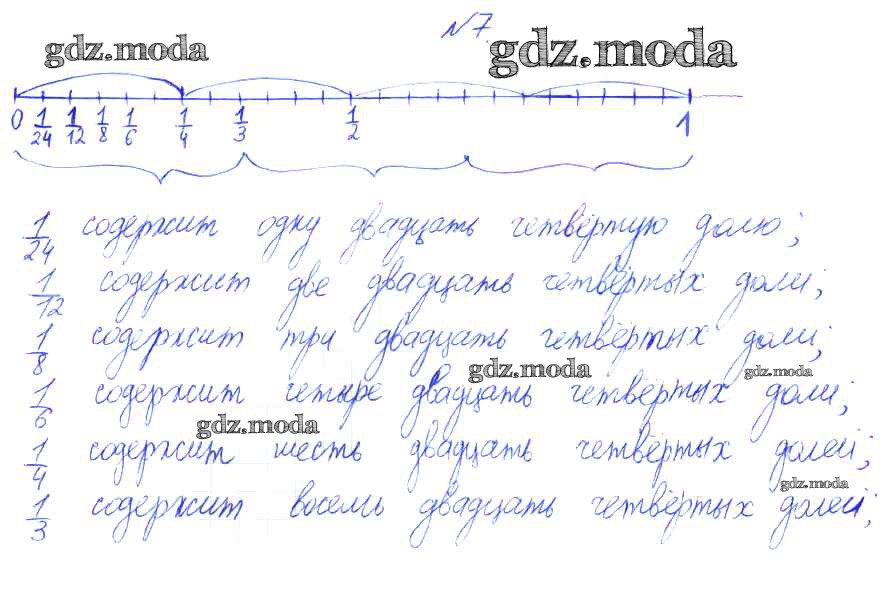 №7
gdz.moda gdz.moda
0 1/24 1/12 1/8 1/6 1/4 1/3 1/2 1
1/24 содержит одну двадцать четвёртую долю;
1/12 содержит две двадцать четвёртых доли;
1/8 содержит три двадцать четвёртых доли;
gdz.moda gdz.moda
1/6 содержит четыре двадцать четвёртых доли;
gdz.moda
1/4 содержит шесть двадцать четвёртых долей;
gdz.moda
1/3 содержит восемь двадцать четвёртых долей;